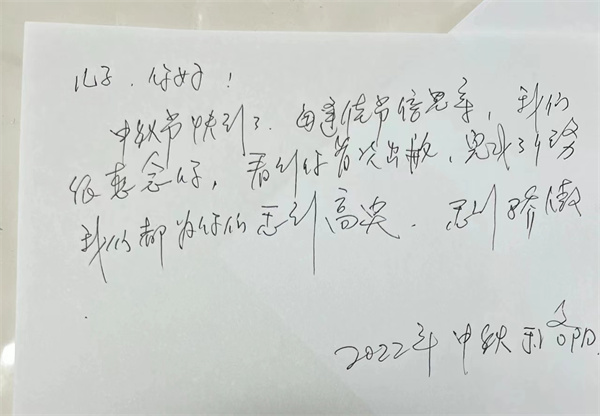 儿子，你好！
中秋节快到了，每逢佳节倍思亲，我们
很想念你，看到你首次出征，完成了任务
我们都为你们感到高兴，感到骄傲
2022年中秋 父